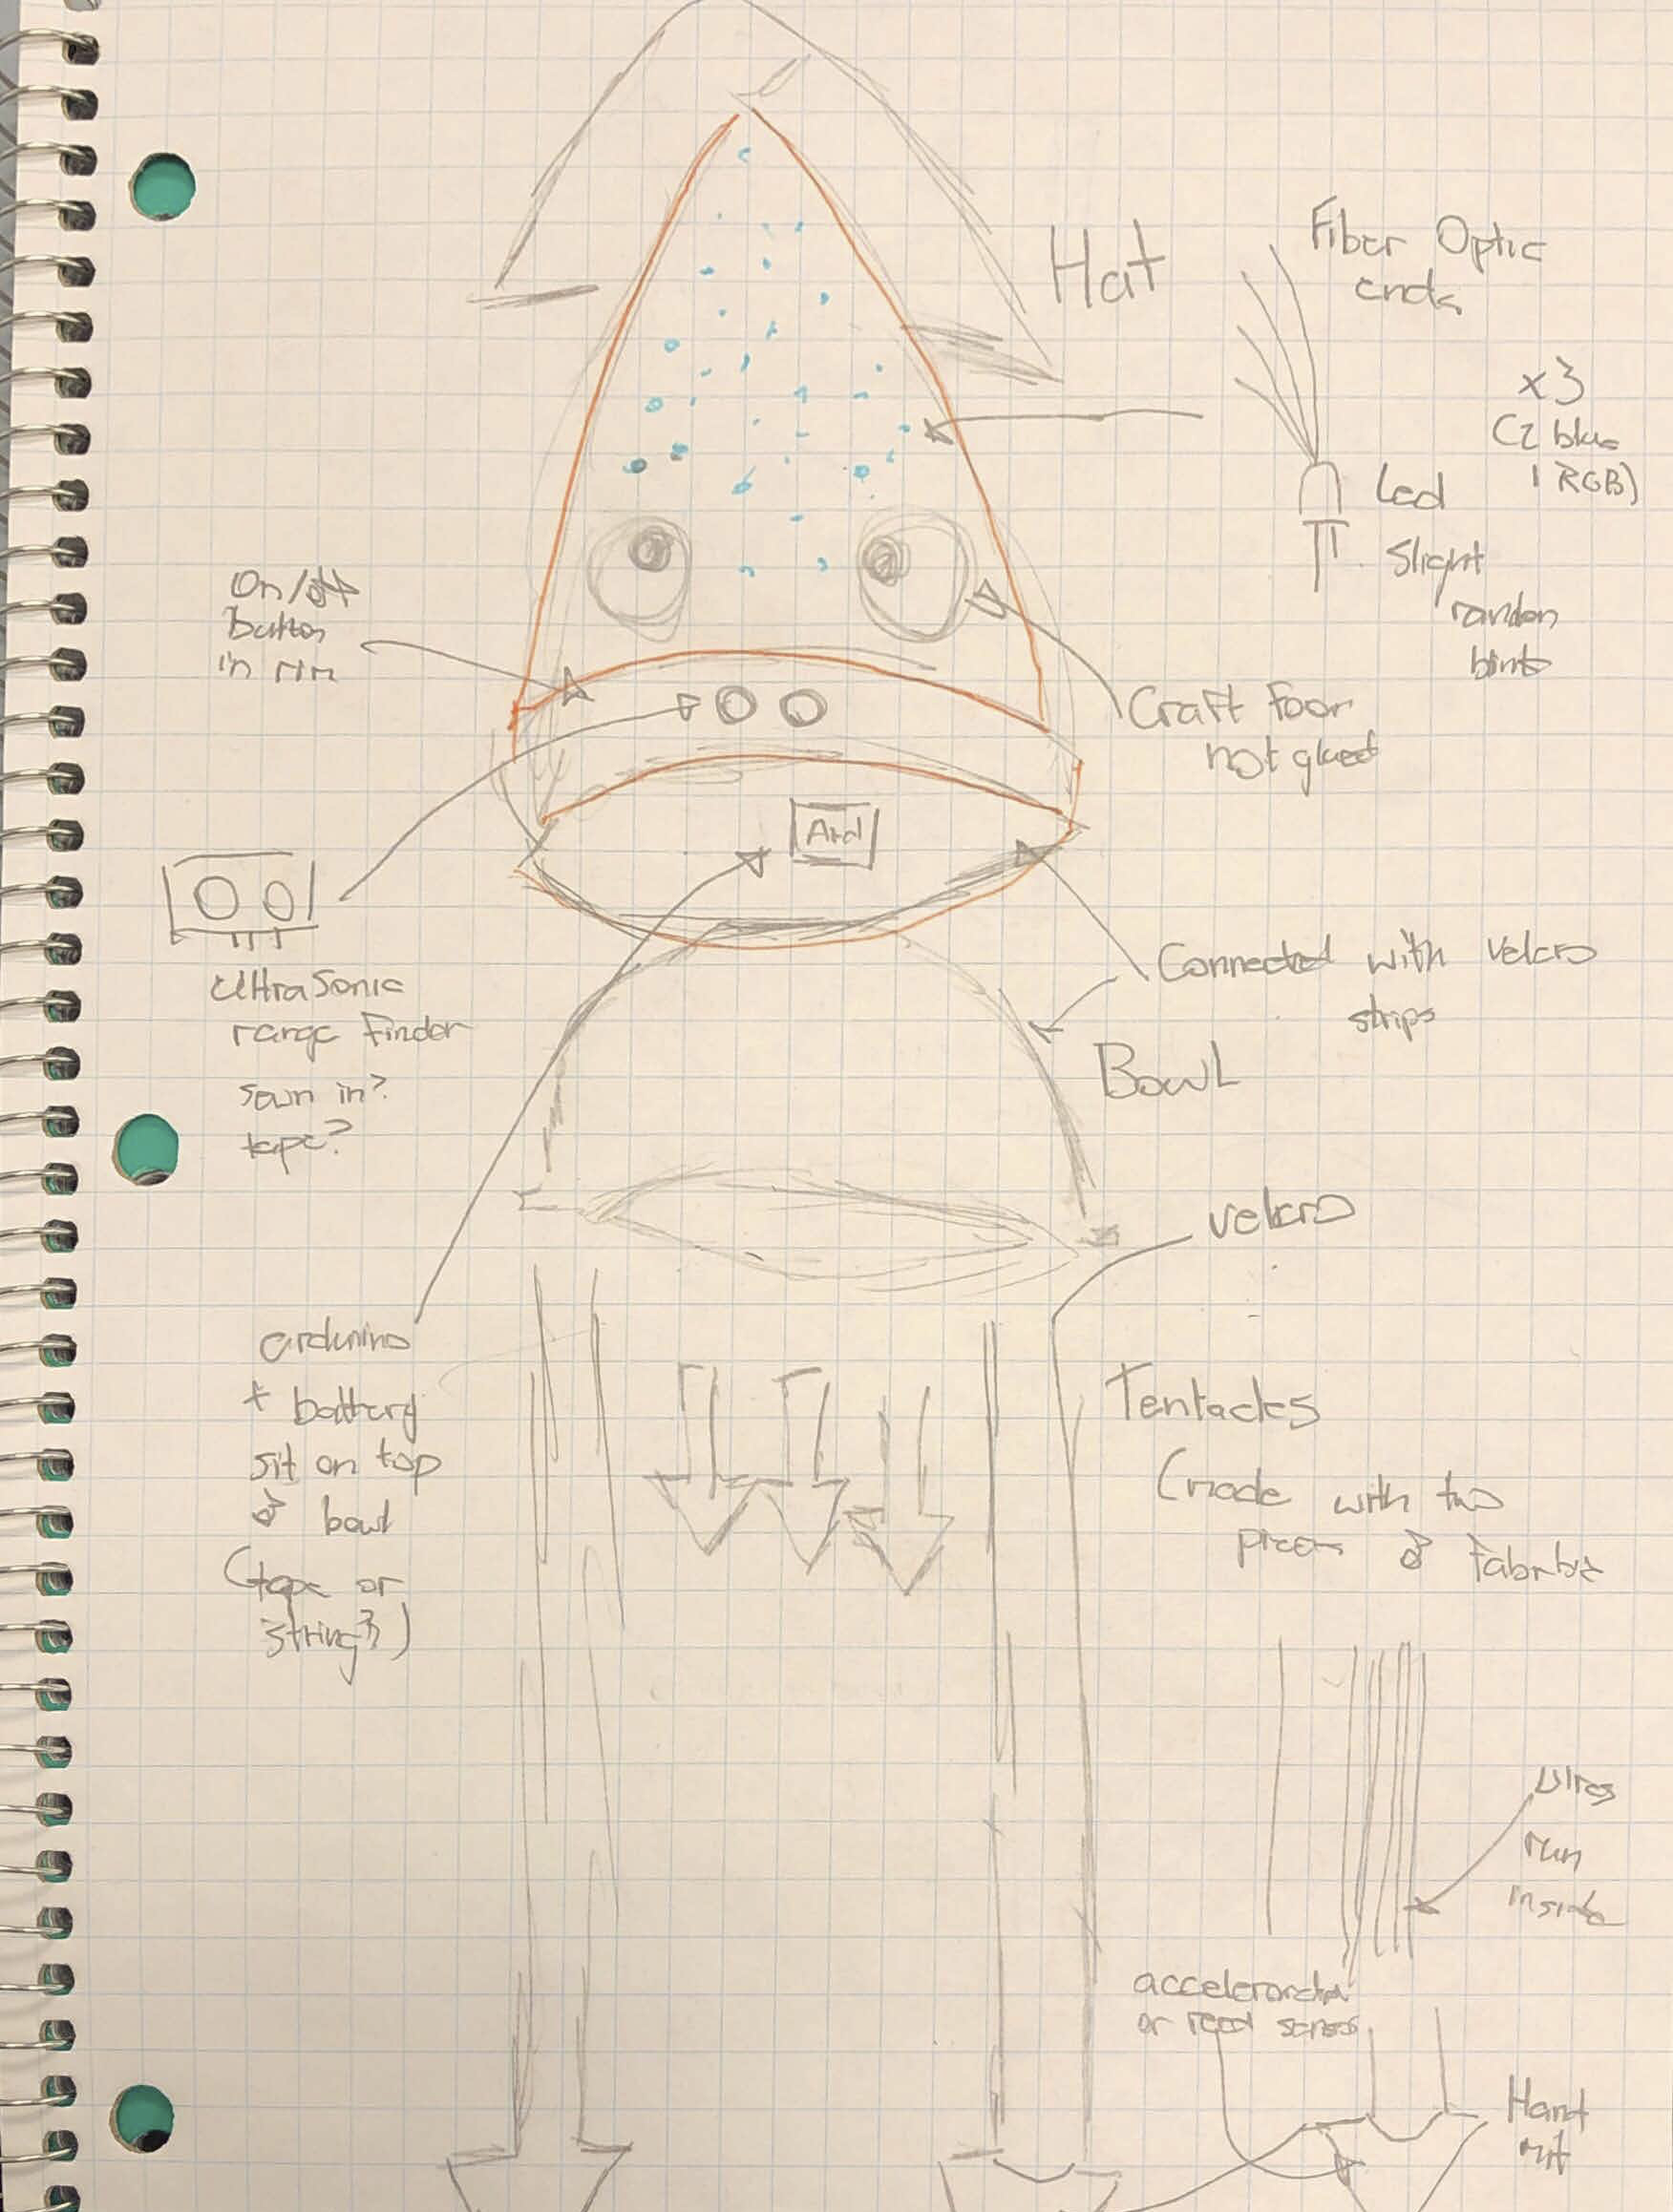 Hat
Fiber Optic
ends
x3
(2 blue
1 RGB)
Led
Slight
random
blinks
On/off
button
in rim
Craft Foam
not glued
Ard
Ultrasonic
range Finder
sewn in?
tape?
Connected with velcro
strips
Bowl
velcro
arduino
+ battery
sit on top
of bowl
(tape or
string?)
Tentacles
(made with two
pieces of Fabric
wires
run
inside
accelerometer
or reed sensor
Hand
mit